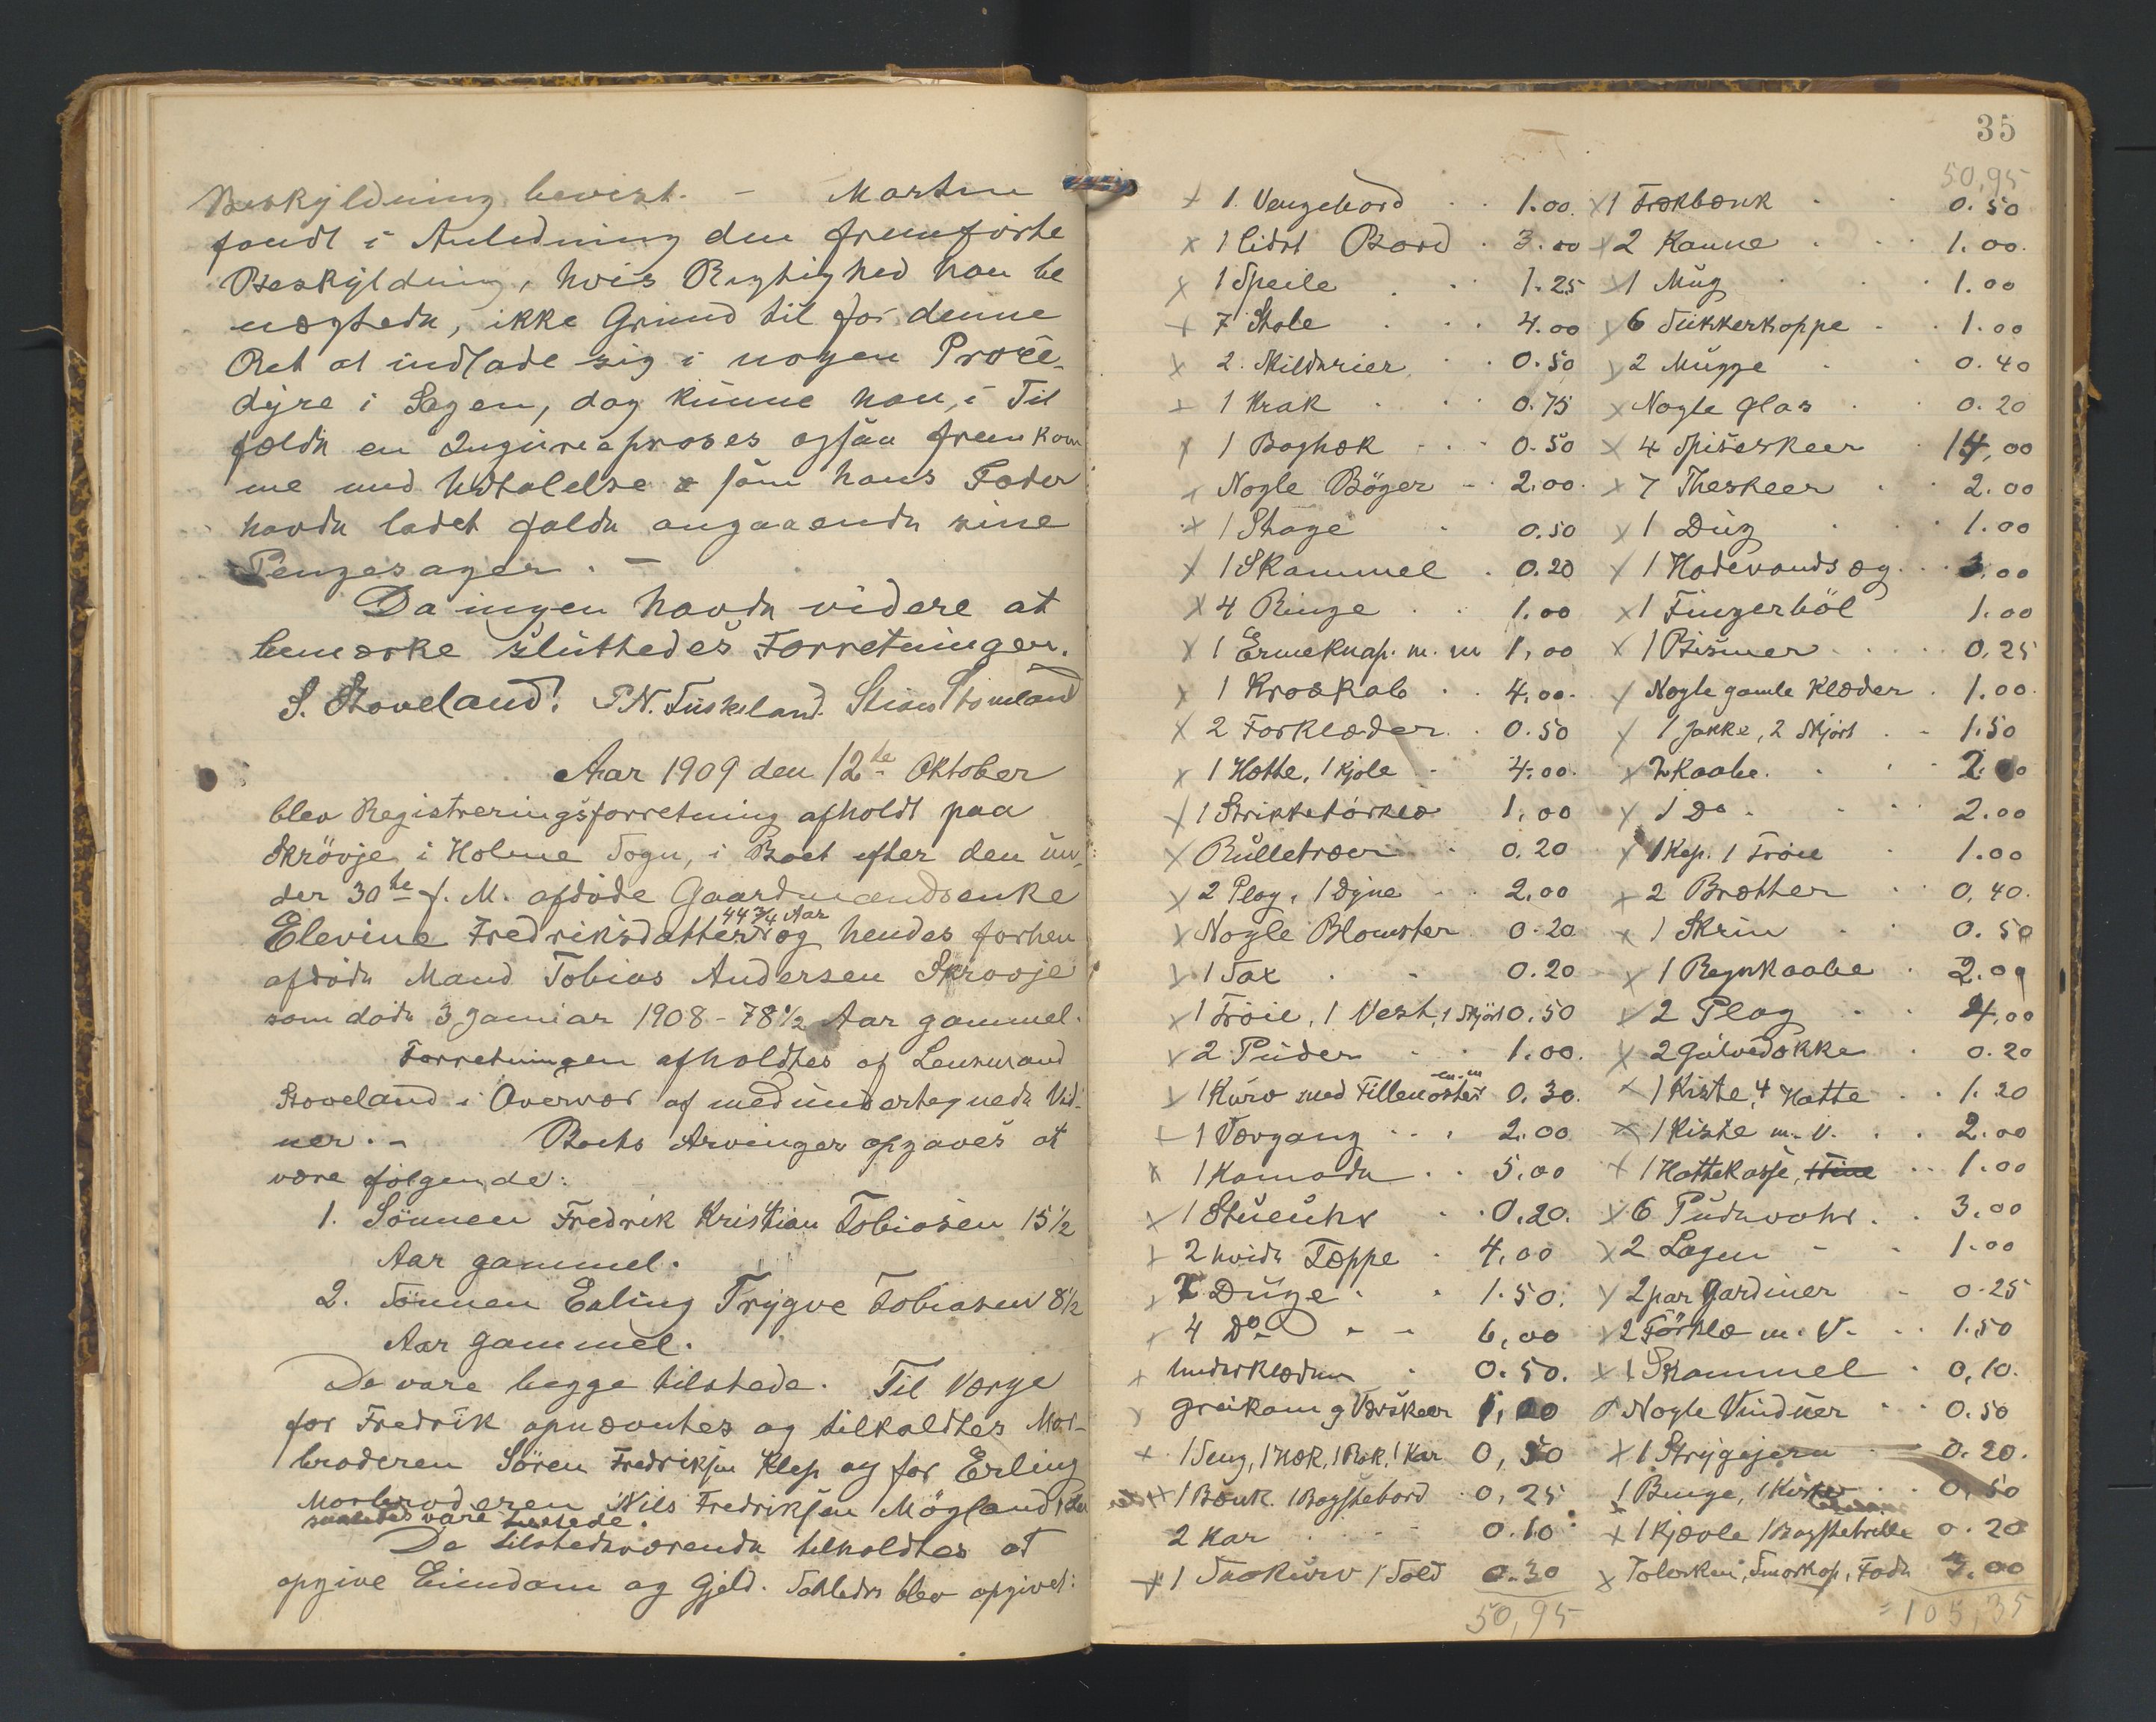 Beskyldning bevist. - Martin
fandt i Anledning den fremførte
Beskyldning, hvis Rigtighed han be
nægtede, ikke Grund til for denne
Ret at indlade sig i nogen Proce-
dyre i Sagen, dog kunne han, i Til
fælde en Injurieproses ogsaa fremkom
me med Udtalelse som hans Fader
havde ladet falde angaaende sine
Pengesager. -
Da ingen havde videre at
bemærke sluttedes Forretningen.
S. Stoveland. P.N. Tuskeland. Stian
Aar 1909 den 12te Oktober
blev Registreringsforretning afholdt paa
Skrövje i Holme Sogn, i Boet efter den un-
der 30te f. M. afdöde Gaardmandsenke
Elevine Fredriksdatter 44 3/4 Aar og hendes forhen
afdöde Mand Tobias Andersen Skrövje
som döde 3 Januar 1908 - 78 1/2 Aar gammel.
Forretningen afholdtes af Lensmand
Stoveland i Overvær af medundertegnede Vid-
ner. - Boets Arvinger opgaves at
være følgende:
1. Sönnen Fredrik Kristian Tobiasen 15 1/2
Aar gammel.
2. Sönnen Erling Trygve Tobiasen 8 1/2
Aar gammel.
De vare begge tilstede. Til Værge
for Fredrik opnævntes og tilkaldtes Mor-
broderen Sören Fredriksen Klep og for Erling
Morbroderen Nils Fredriksen Mögland, der
saaledes vare tilstede.
De tilstedeværende tilholdtes at
opgive Eiendom og Gjeld. Saaledes blev opgivet:
35
x 1 Vengebord 1.00.
x 1 lidet Bord 3.00
x 1 Speile 1.25
x 7 Stole 4.00
x 2 0.50
x 1 Krak 0.75
x 1 Boghæk 0.50
x Nogle Böger 2.00.
x 1 Stage 0.50
x 1 Skammel 0.20
x 4 Ringe 1.00
x 1 Ermeknap. m. m 1,00
x 1 Kroskab 4,00.
x 2 Forklæder 0.50
x 1 Hætte, 1 Kjole 4.00.
x 1 Strikketörklæ 1,00
x Rulletræer 0.20
x 2 Plag, 1 Dyne 2,00
x Nogle Blomster 0.20
x 1 Sax 0.20
x 1 Tröie, 1 Vest, 1 Skjört 0.50
x 2 Puder 1.00.
x 1 Kurv med Filler m.m 0,30.
x 1 Vævgang 2.00
x 1 Komode 5,00
x 1 Stueuhr 0,20.
x 2 hvide Tæppe 4,00
x 2 Duge 1.50.
x 4 Do 6,00
x Underklæder 0.50.
x Greikam 9 Vævskeer 1,00
x 1 Seng, 1 Hæk, 1 Rok, 1 Kar 0,50
x 1 Bænk. 1 Bagstebord 0,25
2 Kar 0.10
x 1 Saakurv 1 Sold 0.30
50,95
50,95
x 1 Trækbænk 0.50
x 2 Kanne 1.00.
x 1 Mug 1.00
x 6 Sukkerkoppe 1.00
x 2 Mugge 0.40
x Nogle Glas 0.20
x 4 Spiseskeer 14,00
x 7 Theskeer 2.00
x 1 Dug 1.00
x 1 Hodevandsæg 3.00
x 1 Fingerböl 1.00
x 1 Bismer 0,25
x Nogle gamle Klæder 1.00.
x 1 Jakke, 2 Skjört 1.50
x 2 Kaabe. 2.00
x 1 Do 2.00
x 1 Kep. 1 Tröie 1.00
x 2 Brætter 0,40.
x 1 Skrin 0.50
x 1 Regnkaabe 2.00
x 2 Plag 4,00
x 2 Gulvedække 0.20
x 1 Kiste, 4 Hatte 1.20
x 1 Kiste m. V. 2.00
x 1 Hattekasse, 1 Tine 1.00
x 6 Pudevahr 3.00
x 2 Lagen 1.00
x 2 par Gardiner 0.25
x 2 Törklæ m. V. 1.50
x 1 Skammel 0,10.
Nogle Vinduer 0.50
x 1 Strygejern 0.20.
x 1 Binge, 1 Kiste 0,50
x 1 Kjævle 1 Bagstetrille 0.20
x Smørkop, Fade 3,00
= 105,35